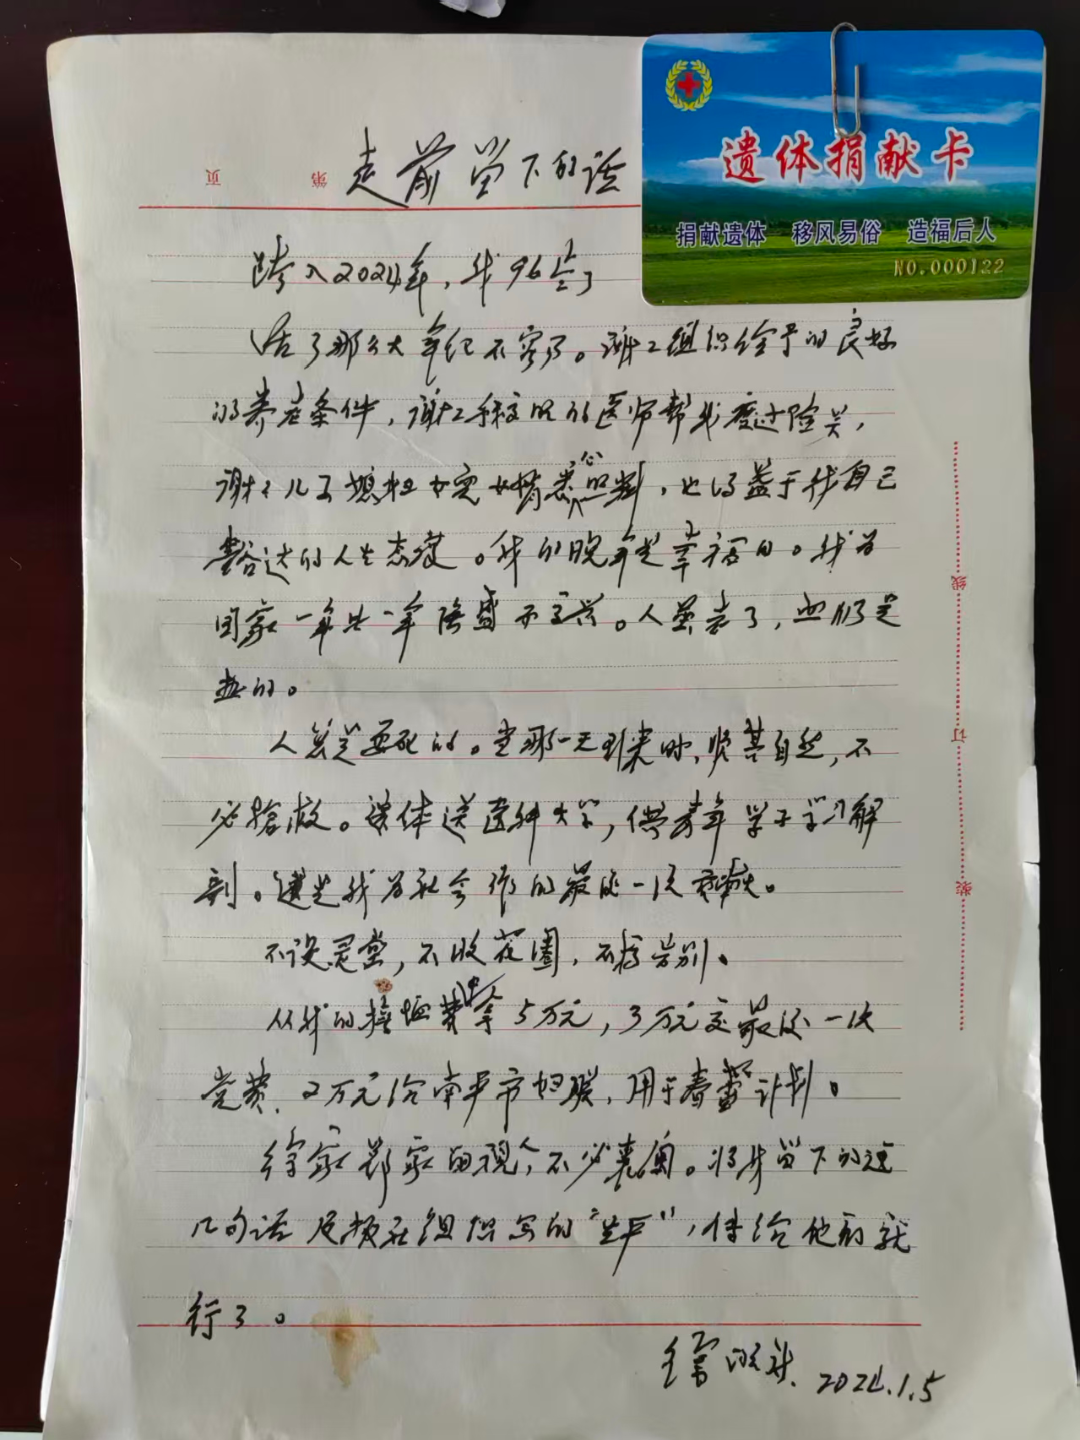 遗体捐献卡
捐献遗体 移风易俗 造福后人
NO.000122
页 第
走前留下的话
跨入2024年，我96岁了
活了那么大年纪不容易。谢谢组织给予的良好
的养老条件，谢谢手术的医师帮我度过险关，
谢谢儿子媳妇女儿女婿悉心照料，也得益于我自己
豁达的人生态度。我的晚年是幸福的。我为
国家一年比一年隆盛而高兴。人虽老了，血仍是
热的。
人总是要死的。当那一天到来时，顺其自然，不
必抢救。遗体送医科大学，供青年学子学习解
剖。这是我为社会作的最后一次贡献。
不设灵堂，不收花圈，不搞告别。
从我的抚恤费中拿5万元，3万元交最后一次
党费，2万元给南平市妇联，用于春蕾计划。
徐家郑家的亲人，不必来闽。将我留下的这
几句话及组织写的“生平”，传给他们就
行了。
2024.1.5
线
订
装